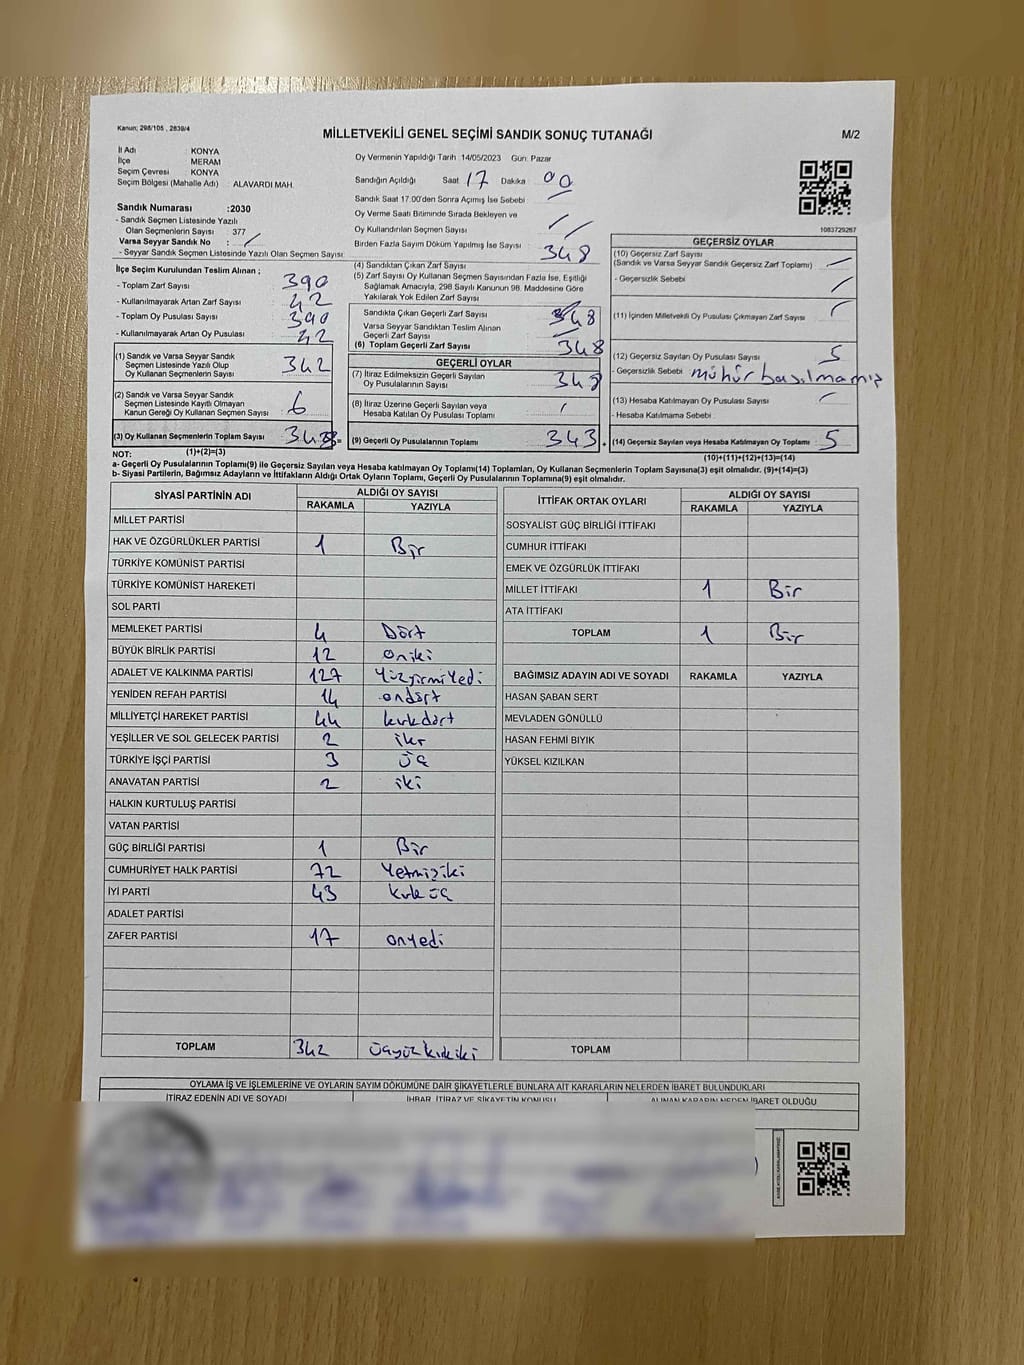 Kanun; 298/105 , 2839/4
MİLLETVEKİLİ GENEL SEÇİMİ SANDIK SONUÇ TUTANAĞI
M/2
İl Adı : KONYA
İlçe : MERAM
Seçim Çevresi : KONYA
Seçim Bölgesi (Mahalle Adı) : ALAVARDI MAH.
Oy Vermenin Yapıldığı Tarih : 14/05/2023 Gün: Pazar
Sandığın Açıldığı Saat 17 Dakika 00
Sandık Saat 17.00'den Sonra Açılmış İse Sebebi
Oy Verme Saati Bitiminde Sırada Bekleyen ve
Oy Kullandırılan Seçmen Sayısı
Birden Fazla Sayım Döküm Yapılmış İse Sayısı
Sandık Numarası :2030
- Sandık Seçmen Listesinde Yazılı
Olan Seçmenlerin Sayısı : 377
Varsa Seyyar Sandık No : /
- Seyyar Sandık Seçmen Listesinde Yazılı Olan Seçmen Sayısı:
İlçe Seçim Kurulundan Teslim Alınan ;
- Toplam Zarf Sayısı 390
- Kullanılmayarak Artan Zarf Sayısı 42
- Toplam Oy Pusulası Sayısı 390
- Kullanılmayarak Artan Oy Pusulası 42
(1) Sandık ve Varsa Seyyar Sandık
Seçmen Listesinde Yazılı Olup
Oy Kullanan Seçmenlerin Sayısı 342
(2) Sandık ve Varsa Seyyar Sandık
Seçmen Listesinde Kayıtlı Olmayan
Kanun Gereği Oy Kullanan Seçmen Sayısı 6
(3) Oy Kullanan Seçmenlerin Toplam Sayısı 348 =
(1)+(2)=(3)
(4) Sandıktan Çıkan Zarf Sayısı 348
(5) Zarf Sayısı Oy Kullanan Seçmen Sayısından Fazla İse, Eşitliği
Sağlamak Amacıyla, 298 Sayılı Kanunun 98. Maddesine Göre
Yakılarak Yok Edilen Zarf Sayısı
Sandıkta Çıkan Geçerli Zarf Sayısı 348
Varsa Seyyar Sandıktan Teslim Alınan
Geçerli Zarf Sayısı
(6) Toplam Geçerli Zarf Sayısı 348
GEÇERLİ OYLAR
(7) İtiraz Edilmeksizin Geçerli Sayılan
Oy Pusulalarının Sayısı 348
(8) İtiraz Üzerine Geçerli Sayılan veya
Hesaba Katılan Oy Pusulası Toplamı /
(9) Geçerli Oy Pusulalarının Toplamı 343 +
1083729267
GEÇERSİZ OYLAR
(10) Geçersiz Zarf Sayısı
(Sandık ve Varsa Seyyar Sandık Geçersiz Zarf Toplamı)
- Geçersizlik Sebebi
(11) İçinden Milletvekili Oy Pusulası Çıkmayan Zarf Sayısı
(12) Geçersiz Sayılan Oy Pusulası Sayısı 5
- Geçersizlik Sebebi mühür basılmamış
(13) Hesaba Katılmayan Oy Pusulası Sayısı
- Hesaba Katılmama Sebebi
(14) Geçersiz Sayılan veya Hesaba Katılmayan Oy Toplamı 5
(10)+(11)+(12)+(13)=(14)
NOT:
a- Geçerli Oy Pusulalarının Toplamı(9) ile Geçersiz Sayılan veya Hesaba katılmayan Oy Toplamı(14) Toplamları, Oy Kullanan Seçmenlerin Toplam Sayısına(3) eşit olmalıdır. (9)+(14)=(3)
b- Siyasi Partilerin, Bağımsız Adayların ve İttifakların Aldığı Ortak Oyların Toplamı, Geçerli Oy Pusulalarının Toplamına(9) eşit olmalıdır.
SİYASİ PARTİNİN ADI ALDIĞI OY SAYISI
RAKAMLA YAZIYLA
MİLLET PARTİSİ
HAK VE ÖZGÜRLÜKLER PARTİSİ 1 Bir
TÜRKİYE KOMÜNİST PARTİSİ
TÜRKİYE KOMÜNİST HAREKETİ
SOL PARTİ
MEMLEKET PARTİSİ 4 Dört
BÜYÜK BİRLİK PARTİSİ 12 oniki
ADALET VE KALKINMA PARTİSİ 127 Yüzyirmiyedi
YENİDEN REFAH PARTİSİ 14 ondört
MİLLİYETÇİ HAREKET PARTİSİ 44 kırkdört
YEŞİLLER VE SOL GELECEK PARTİSİ 2 iki
TÜRKİYE İŞÇİ PARTİSİ 3 üç
ANAVATAN PARTİSİ 2 iki
HALKIN KURTULUŞ PARTİSİ
VATAN PARTİSİ
GÜÇ BİRLİĞİ PARTİSİ 1 Bir
CUMHURİYET HALK PARTİSİ 72 Yetmişiki
İYİ PARTİ 43 kırk üç
ADALET PARTİSİ
ZAFER PARTİSİ 17 onyedi
TOPLAM 342 üçyüzkırkiki
İTTİFAK ORTAK OYLARI ALDIĞI OY SAYISI
RAKAMLA YAZIYLA
SOSYALİST GÜÇ BİRLİĞİ İTTİFAKI
CUMHUR İTTİFAKI
EMEK VE ÖZGÜRLÜK İTTİFAKI
MİLLET İTTİFAKI 1 Bir
ATA İTTİFAKI
TOPLAM 1 Bir
BAĞIMSIZ ADAYIN ADI VE SOYADI RAKAMLA YAZIYLA
HASAN ŞABAN SERT
MEVLADEN GÖNÜLLÜ
HASAN FEHMİ BIYIK
YÜKSEL KIZILKAN
TOPLAM
OYLAMA İŞ VE İŞLEMLERİNE VE OYLARIN SAYIM DÖKÜMÜNE DAİR ŞİKAYETLERLE BUNLARA AİT KARARLARIN NELERDEN İBARET BULUNDUKLARI
İTİRAZ EDENİN ADI VE SOYADI İHBAR, İTİRAZ VE ŞİKAYETİN KONUSU ALINAN KARARIN NEDEN İBARET OLDUĞU